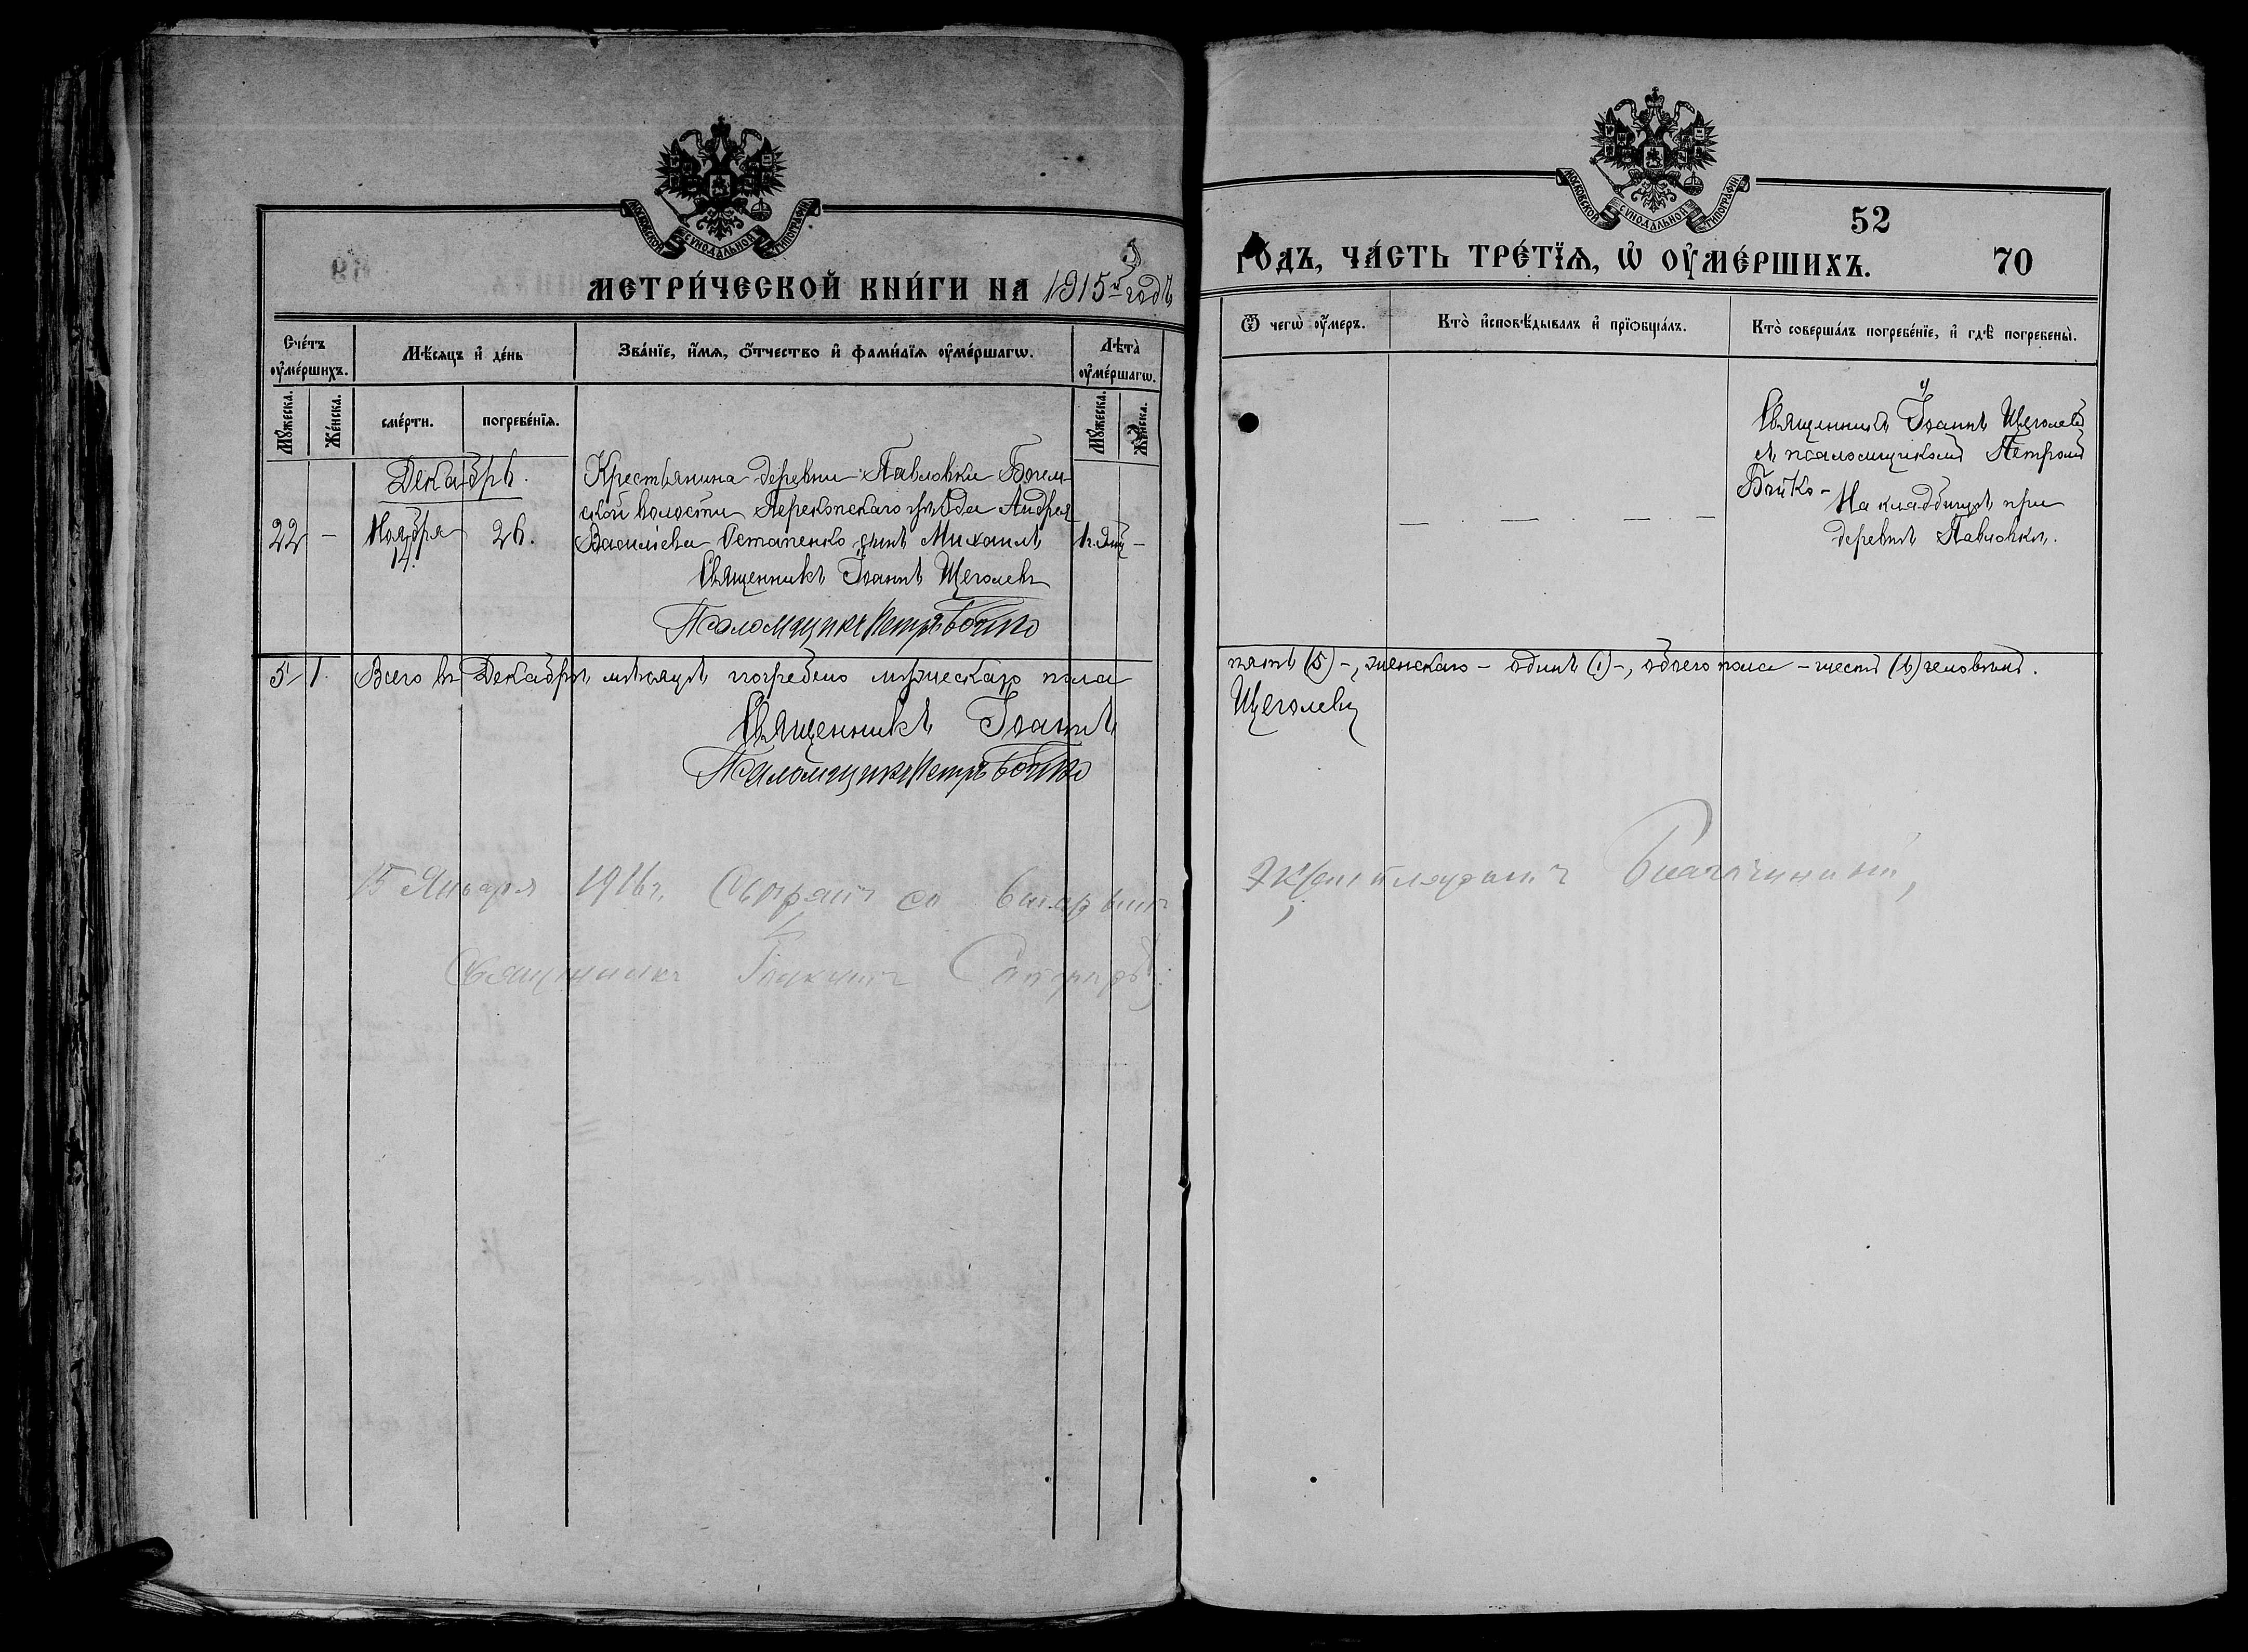 МОСКОВСКОЙ СѴНОДАЛЬНОЙ ТИПОГРАФІИ
МЕТРИ́ЧЕСКОЙ КНИ́ГИ НА 1915й годъ
Сче́тъ оу҆ме́ршихъ.
Мѣ́сяцъ и҆ де́нь
Зва́нїе, и҆́мѧ, ѻ҆́тчество и҆ фами́лїѧ оу҆ме́ршагѡ.
Лѣта̀ оу҆ме́ршагѡ.
Мꙋ́жеска.
Же́нска.
сме́рти.
погребе́нїѧ.
Мꙋ́жеска.
Же́нска.
Декабрь.
Крестьянина деревни Павловки Богем-
ской волости Перекопскаго уѣзда Андрея
22 – Ноября 14. 26. Василіева Остапенко сынъ Михаилъ 1 г. –
Священникъ Іоаннъ Щеголевъ
Псаломщикъ Петръ Бойко
5 1. Всего въ Декабрѣ мѣсяцѣ погребено мужескаго пола
Священникъ Іоаннъ
Псаломщикъ Петръ Бойко
15 Января 1916 г.
Священникъ
МОСКОВСКОЙ СѴНОДАЛЬНОЙ ТИПОГРАФІИ
52
ГО́ДЪ, ЧА́СТЬ ТРЕ́ТЇѦ, Ѡ҆ ОУ҆МЕ́РШИХЪ. 70
Ѿ чегѡ̀ оу҆́меръ.
Кто̀ и҆сповѣ́дывалъ и҆ прїѡбща́лъ.
Кто̀ соверша́лъ погребе́нїе, и҆ гдѣ̀ погребены̀.
Священникъ Іоаннъ Щеголевъ
съ псаломщикомъ Петромъ
Бойко –
На кладбищѣ при
деревнѣ Павловкѣ.
пять (5) –, женскаго – одинъ (1) –, обоего пола – шесть (6) человѣкъ.
Щеголевъ
Благочинный,